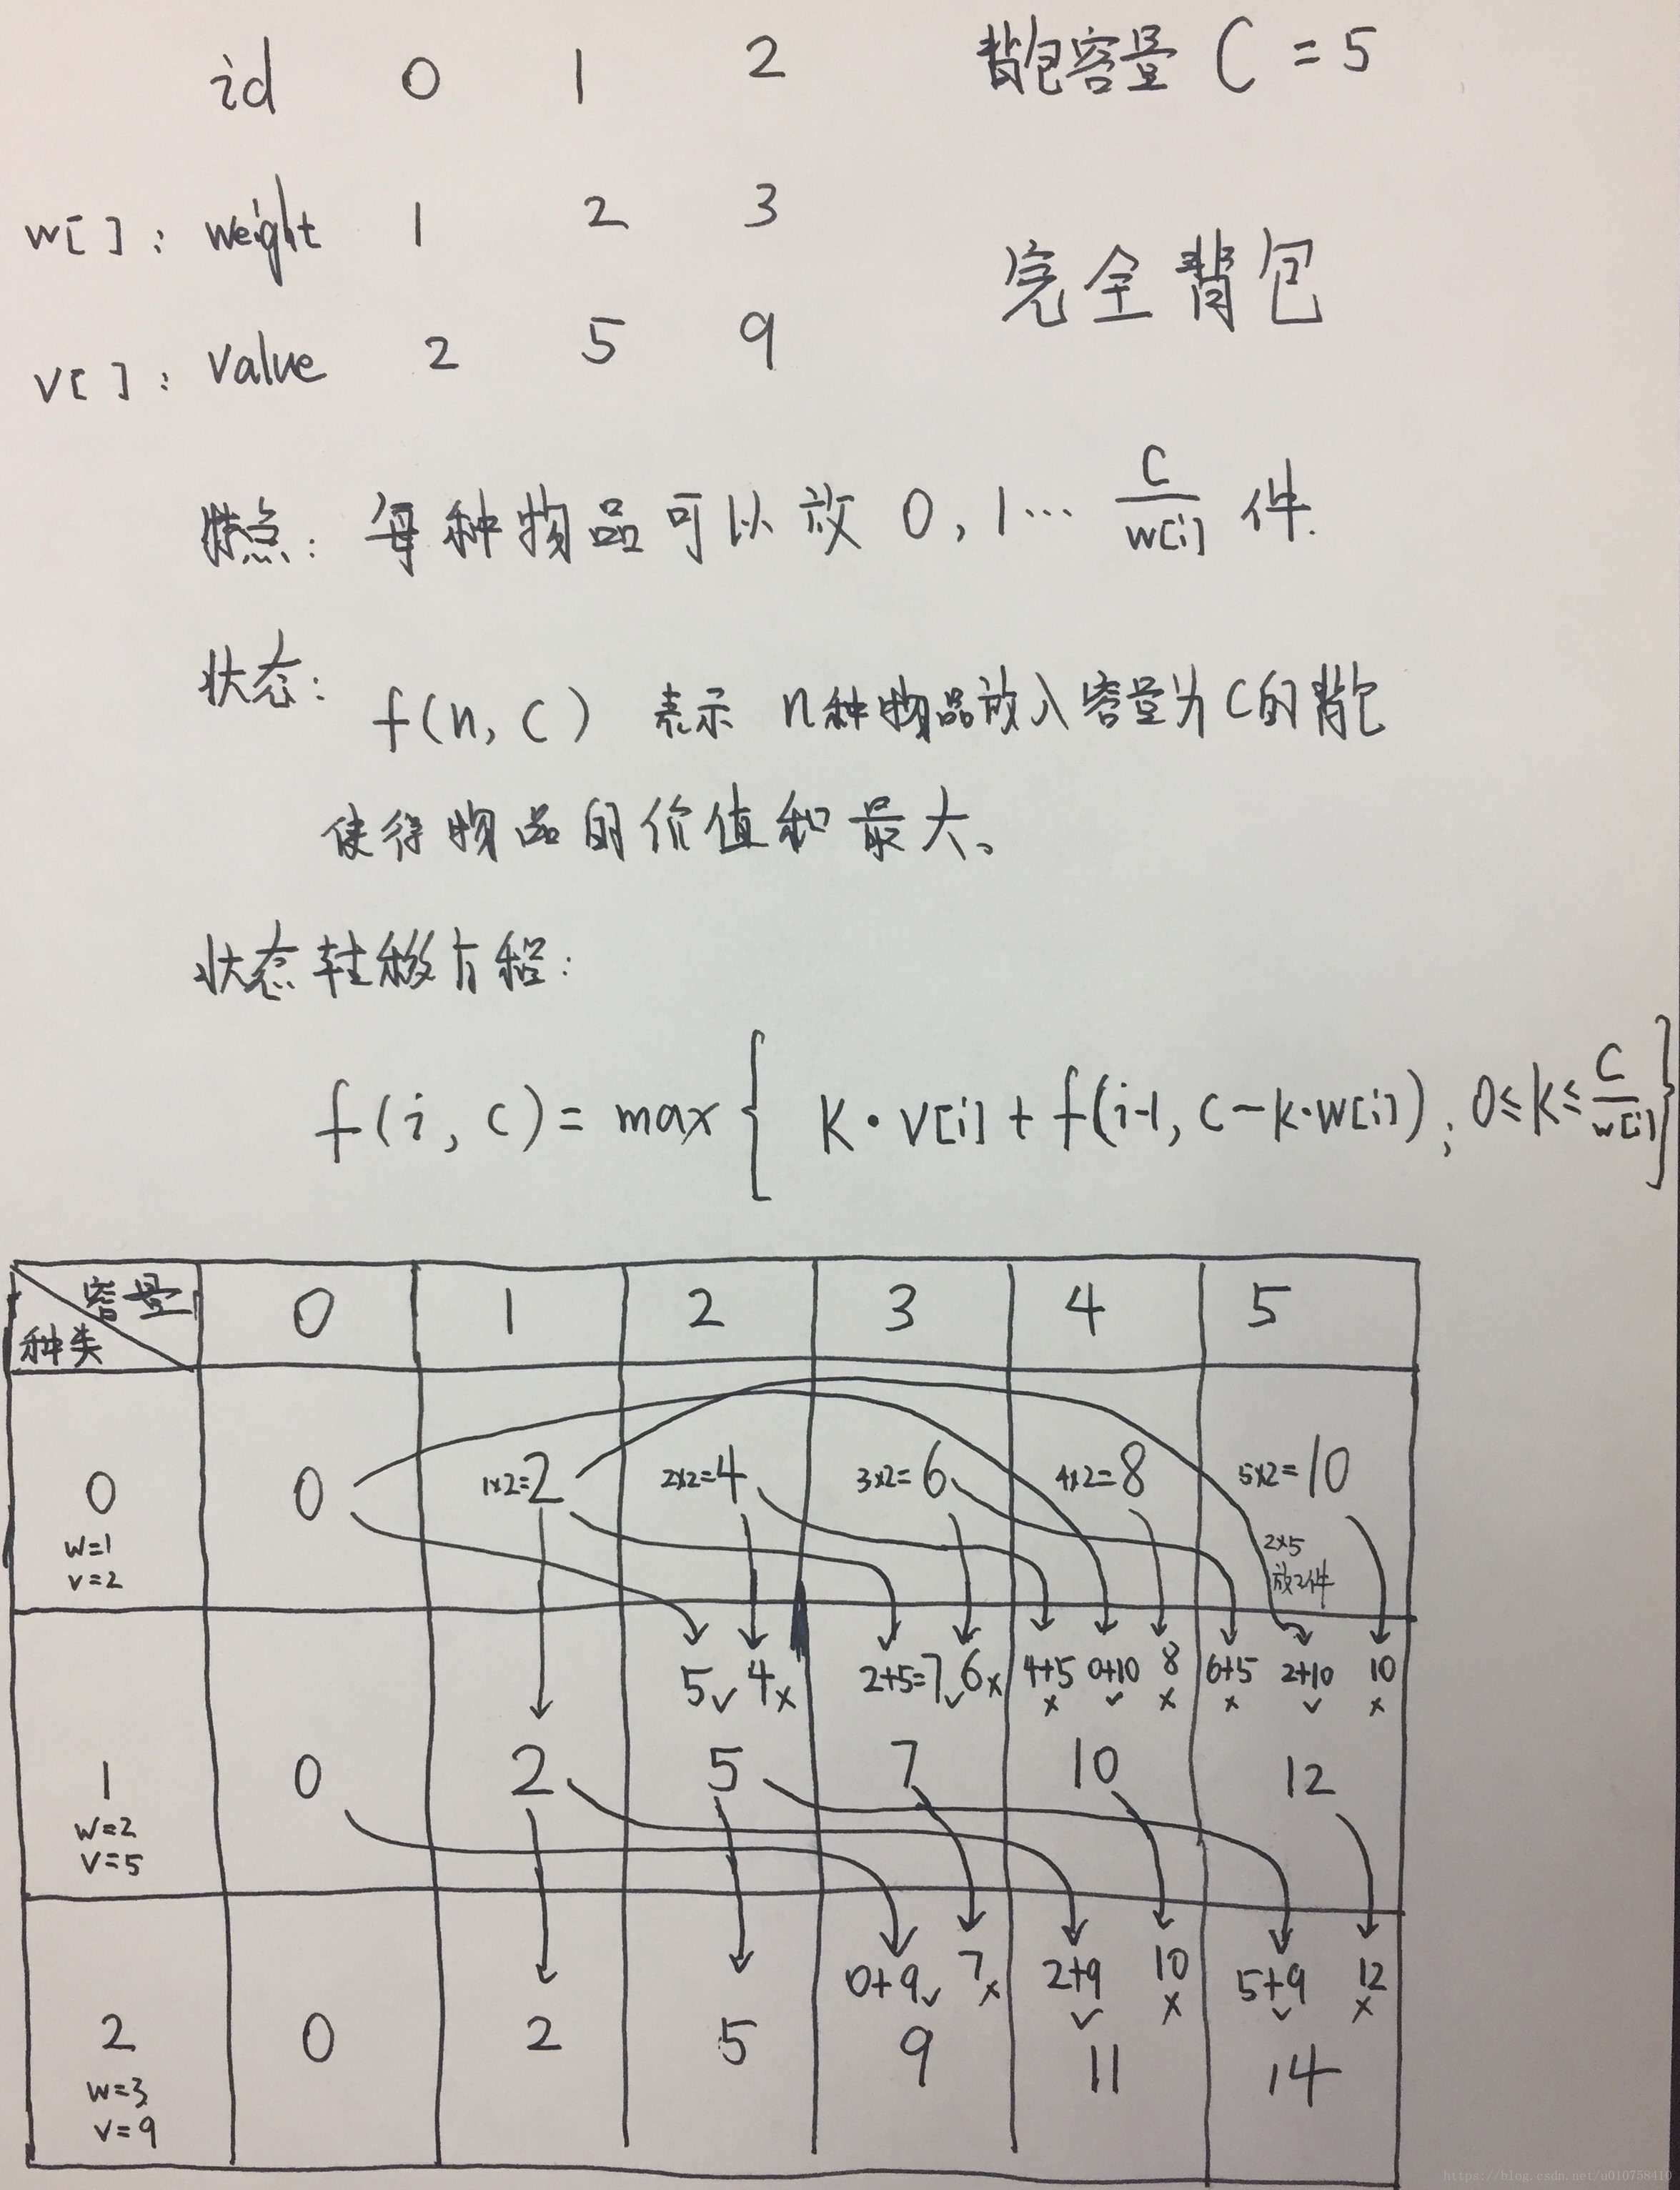 id 0 1 2 背包容量 C = 5
w[ ] : weight 1 2 3
完全背包
v[ ] : value 2 5 9
特点: 每种物品可以放 0, 1… C/w[i] 件.
状态: f(n, C) 表示 n种物品放入容量为C的背包
使得物品的价值和最大。
状态转移方程:
f(i, c) = max { K·v[i] + f(i-1, c-k·w[i]) ; 0≤k≤ C/w[i] }
容量 0 1 2 3 4 5
种类
0 0 1x2=2 2x2=4 3x2=6 4x2=8 5x2=10
w=1
v=2
2x5
放2件
5✓ 4x 2+5=7✓ 6x 4+5 0+10 8 6+5 2+10 10
x ✓ x x ✓ x
1 0 2 5 7 10 12
w=2
v=5
0+9✓ 7x 2+9 10 5+9 12
✓ x ✓ x
2 0 2 5 9 11 14
w=3
v=9
https://blog.csdn.net/u010758410